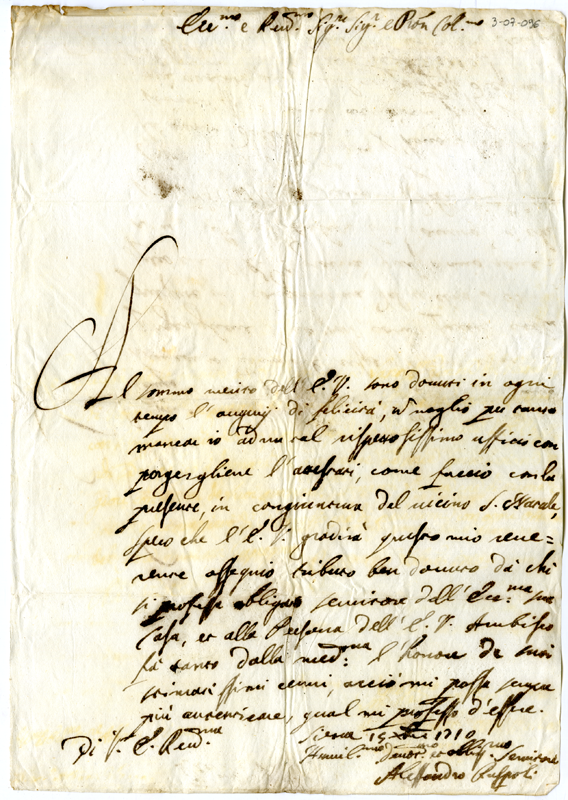 Ecc.mo e Reu.mo Sig.re Sig.r e Pron Col.mo
3-07-096
Al sommo merito dell'E. V. sono douuti in ogni
tempo l'augurij di felicità, nè uoglio per tanto
mancare io ad un tal rispetosissimo ufficio con
porgergliene l'attestati, come faccio con la
presente, in congiuntura del uicino S. Natale,
spero che l'E. V. gradirà questo mio reue=
rente ossequio tributo ben douuto da chi
si professa obligato seruitore dell'Ecc.ma sua
Casa, et alla Persona dell'E. V. Ambisco
frà tanto dalla med.ma l'honore de suoi
stimatissimi cenni, acciò mi possa sempre
più autenticare, qual mi professo d'essere.
Di V.ra E. Reu.ma
Siena 15 1710
Humil.mo Deuot.mo et oblig.mo Seruitore
Alessandro Ruspoli